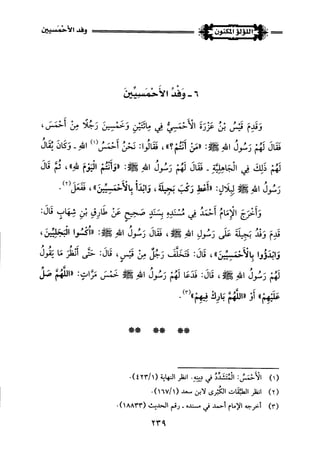 اللؤلؤ المكنون
وفد الأحمسيين
٦ - وَفْدُ الأَحْمَسِيِّينَ
وَقَدِمَ قَيْسُ بْنُ عَزْرَةَ الأَحْمَسِيُّ فِي مِائَتَيْنِ وَخَمْسِينَ رَجُلًا مِنْ أَحْمَسَ،
فَقَالَ لَهُمْ رَسُولُ اللهِ ﷺ: «مَنْ أَنْتُمْ؟»، فَقَالُوا: نَحْنُ أَحْمَسُ(١) اللهِ - وَكَانَ يُقَالُ
لَهُمْ ذَلِكَ فِي الْجَاهِلِيَّةِ - فَقَالَ لَهُمْ رَسُولُ اللهِ ﷺ: «وَأَنْتُمُ الْيَوْمَ للهِ»، ثُمَّ قَالَ
رَسُولُ اللهِ ﷺ لِبِلَالٍ: «أَعْطِ رَكْبَ بَجِيلَةَ، وَابْدَأْ بِالأَحْمَسِيِّينَ»، فَفَعَلَ(٢).
وَأَخْرَجَ الإِمَامُ أَحْمَدُ فِي مُسْنَدِهِ بِسَنَدٍ صَحِيحٍ عَنْ طَارِقِ بْنِ شِهَابٍ قَالَ:
قَدِمَ وَفْدُ بَجِيلَةَ عَلَى رَسُولِ اللهِ ﷺ، فَقَالَ رَسُولُ اللهِ ﷺ: «اكْسُوا الْبَجَلِيِّينَ،
وَابْدَؤُوا بِالأَحْمَسِيِّينَ»، قَالَ: فَتَخَلَّفَ رَجُلٌ مِنْ قَيْسٍ، قَالَ: حَتَّى أَنْظُرَ مَا يَقُولُ
لَهُمْ رَسُولُ اللهِ ﷺ، قَالَ: فَدَعَا لَهُمْ رَسُولُ اللهِ ﷺ خَمْسَ مَرَّاتٍ: «اللَّهُمَّ صَلِّ
عَلَيْهِمْ» أَوْ «اللَّهُمَّ بَارِكْ فِيهِمْ»(٣).
** ** **
(١) الأَحْمَسُ: الْمُتَشَدِّدُ في دينِهِ. انظر النهاية (٤٢٣/١).
(٢) انظر الطَّبَقَات الكُبْرى لابن سعد (١٦٧/١).
(٣) أخرجه الإمام أحمد في مسنده - رقم الحديث (١٨٨٣٣).
٢٣٩